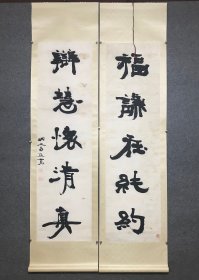 福謙在純約
辯慧懷清真